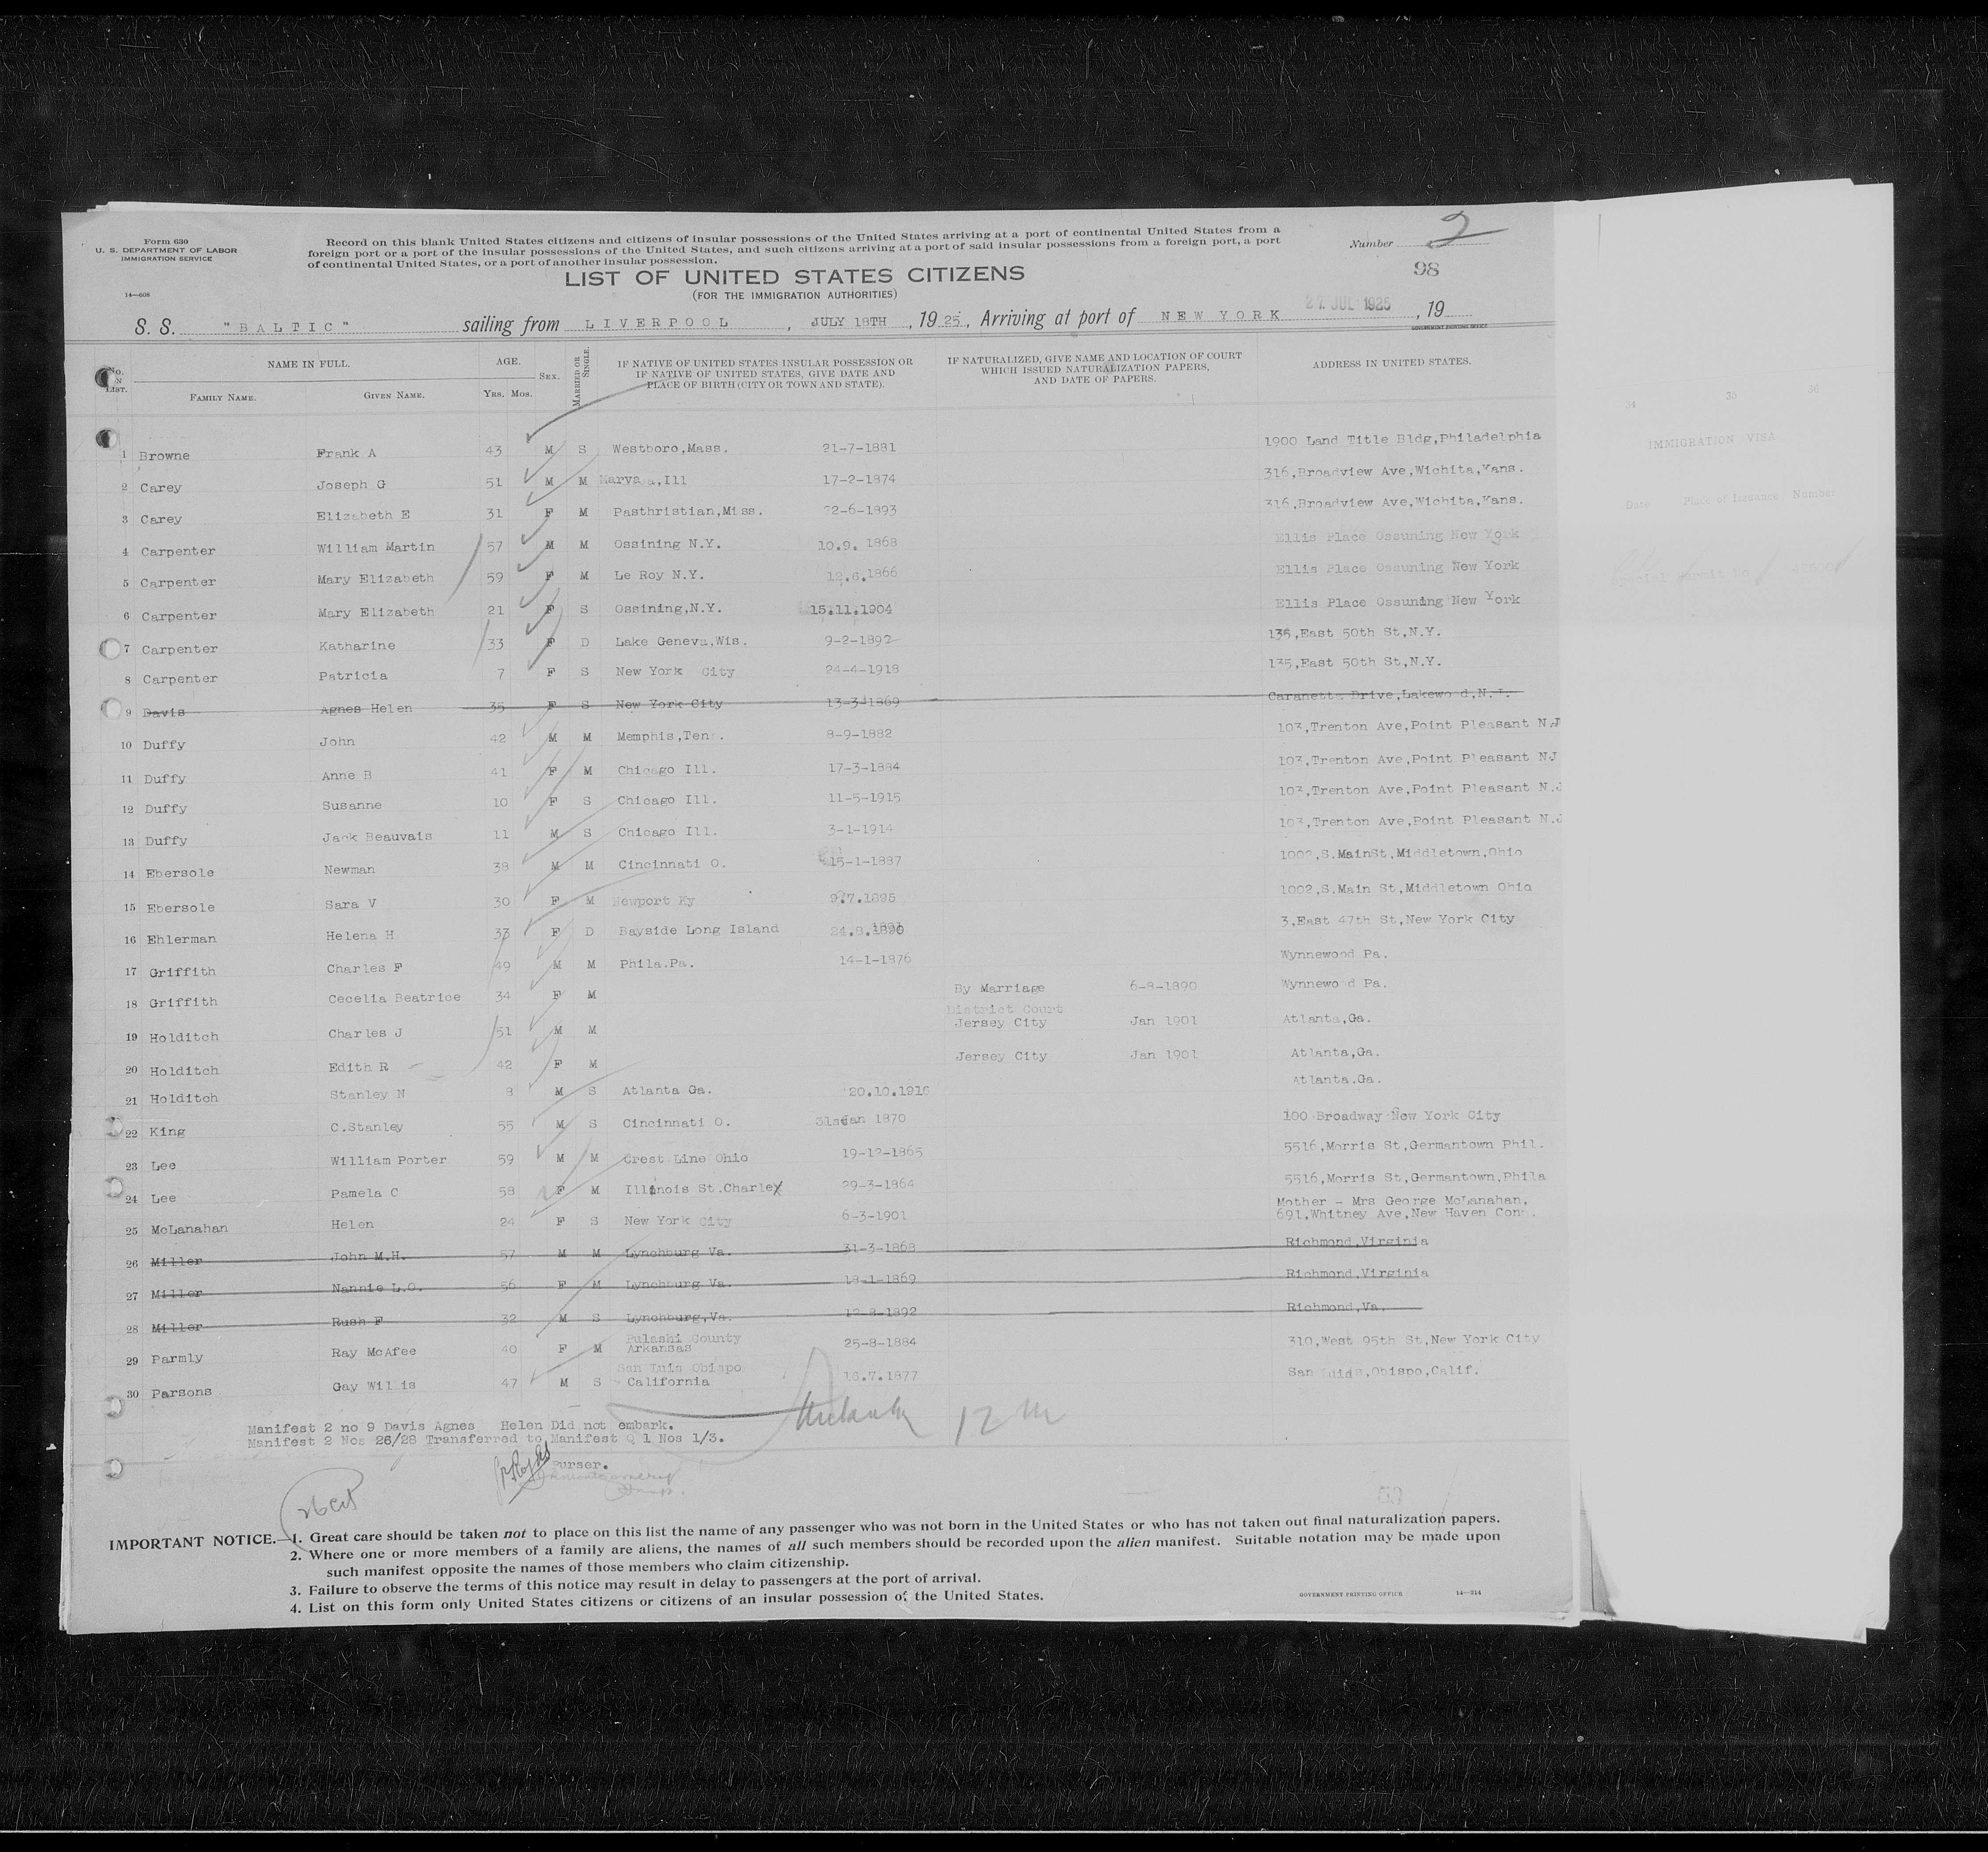 Form 630
U. S. DEPARTMENT OF LABOR
IMMIGRATION SERVICE
14—608
Record on this blank United States citizens and citizens of insular possessions of the United States arriving at a port of continental United States from a
foreign port or a port of the insular possessions of the United States, and such citizens arriving at a port of said insular possessions from a foreign port, a port
of continental United States, or a port of another insular possession.
Number 2
98
LIST OF UNITED STATES CITIZENS
(FOR THE IMMIGRATION AUTHORITIES)
S. S. "BALTIC" sailing from LIVERPOOL, JULY 18TH, 1925, Arriving at port of NEW YORK 27 JUL 1925, 19
GOVERNMENT PRINTING OFFICE
No. IN LIST. NAME IN FULL. FAMILY NAME. GIVEN NAME. AGE. YRS. MOS. SEX. MARRIED OR SINGLE. IF NATIVE OF UNITED STATES INSULAR POSSESSION OR IF NATIVE OF UNITED STATES, GIVE DATE AND PLACE OF BIRTH (CITY OR TOWN AND STATE). IF NATURALIZED, GIVE NAME AND LOCATION OF COURT WHICH ISSUED NATURALIZATION PAPERS, AND DATE OF PAPERS. ADDRESS IN UNITED STATES.
1 Browne Frank A 43 M S Westboro,Mass. 21-7-1881 1900 Land Title Bldg,Philadelphia
2 Carey Joseph G 51 M M 17-2-1874 316,Broadview Ave,Wichita,Kans.
3 Carey Elizabeth E 31 F M Pasthristian,Miss. 22-6-1893 316,Broadview Ave,Wichita,Kans.
4 Carpenter William Martin 57 M M Ossining N.Y. 10.9. 1868 Ellis Place Ossuning New York
5 Carpenter Mary Elizabeth 59 F M Le Roy N.Y. 12.6.1866 Ellis Place Ossuning New York
6 Carpenter Mary Elizabeth 21 F S Ossining,N.Y. 15.11.1904 Ellis Place Ossuning New York
7 Carpenter Katharine 33 F D Lake Geneva,Wis. 9-2-1892 135,East 50th St,N.Y.
8 Carpenter Patricia 7 F S New York City 24-4-1918 135,East 50th St,N.Y.
9 Davis Agnes Helen 35 F S New York City 13-3-1869 Drive,Lakewood,N.J.
10 Duffy John 42 M M Memphis,Tenn. 8-9-1882 103,Trenton Ave,Point Pleasant N.J
11 Duffy Anne B 41 F M Chicago Ill. 17-3-1884 103,Trenton Ave,Point Pleasant NJ
12 Duffy Susanne 10 F S Chicago Ill. 11-5-1915 103,Trenton Ave,Point Pleasant N.J
13 Duffy Jack Beauvais 11 M S Chicago Ill. 3-1-1914 103,Trenton Ave,Point Pleasant N.J
14 Ebersole Newman 38 M M Cincinnati O. 15-1-1887 1002,S.MainSt,Middletown,Ohio
15 Ebersole Sara V 30 F M Newport Ky 9.7.1895 1002,S.Main St,Middletown Ohio
16 Ehlerman Helena H 33 F D Bayside Long Island 24.8. 3,East 47th St,New York City
17 Griffith Charles F 49 M M Phila.Pa. 14-1-1876 Wynnewood Pa.
18 Griffith Cecelia Beatrice 34 F M By Marriage 6-8-1890 Wynnewood Pa.
19 Holditch Charles J 51 M M District Court Jersey City Jan 1901 Atlanta,Ga.
20 Holditch Edith R 42 F M Jersey City Jan 1901 Atlanta,Ga.
21 Holditch Stanley N 8 M S Atlanta Ga. 20.10.1916 Atlanta.Ga.
22 King C.Stanley 55 M S Cincinnati O. 31st Jan 1870 100 Broadway New York City
23 Lee William Porter 59 M M Crest Line Ohio 19-12-1865 5516,Morris St,Germantown Phil.
24 Lee Pamela C 58 F M Illinois St.Charle 29-3-1864 5516,Morris St,Germantown,Phila
25 McLanahan Helen 24 F S New York City 6-3-1901 Mother - Mrs George McLanahan, 691,Whitney Ave,New Haven Conn.
26 Miller John M.H. 57 M M Lynchburg Va. 31-3-1868 Richmond,Virginia
27 Miller Nannie L.O. 56 F M Lynchburg Va. 18-1-1869 Richmond,Virginia
28 Miller Rush F 32 M S Lynchburg,Va. 12-8-1892 Richmond,Va.
29 Parmly Ray McAfee 40 F M Pulashi County Arkansas 25-8-1884 310,West 95th St,New York City
30 Parsons Gay Willis 47 M S San Luis Obispo California 16.7.1877 San Luids,Obispo,Calif.
Manifest 2 no 9 Davis Agnes Helen Did not embark.
Manifest 2 Nos 26/28 Transferred to Manifest Q 1 Nos 1/3.
12 M
Purser.
26 Cit
IMPORTANT NOTICE.—1. Great care should be taken not to place on this list the name of any passenger who was not born in the United States or who has not taken out final naturalization papers.
2. Where one or more members of a family are aliens, the names of all such members should be recorded upon the alien manifest. Suitable notation may be made upon
such manifest opposite the names of those members who claim citizenship.
3. Failure to observe the terms of this notice may result in delay to passengers at the port of arrival.
4. List on this form only United States citizens or citizens of an insular possession of the United States.
GOVERNMENT PRINTING OFFICE 14—314
34 35 36
IMMIGRATION VISA
Date Place of Issuance Number